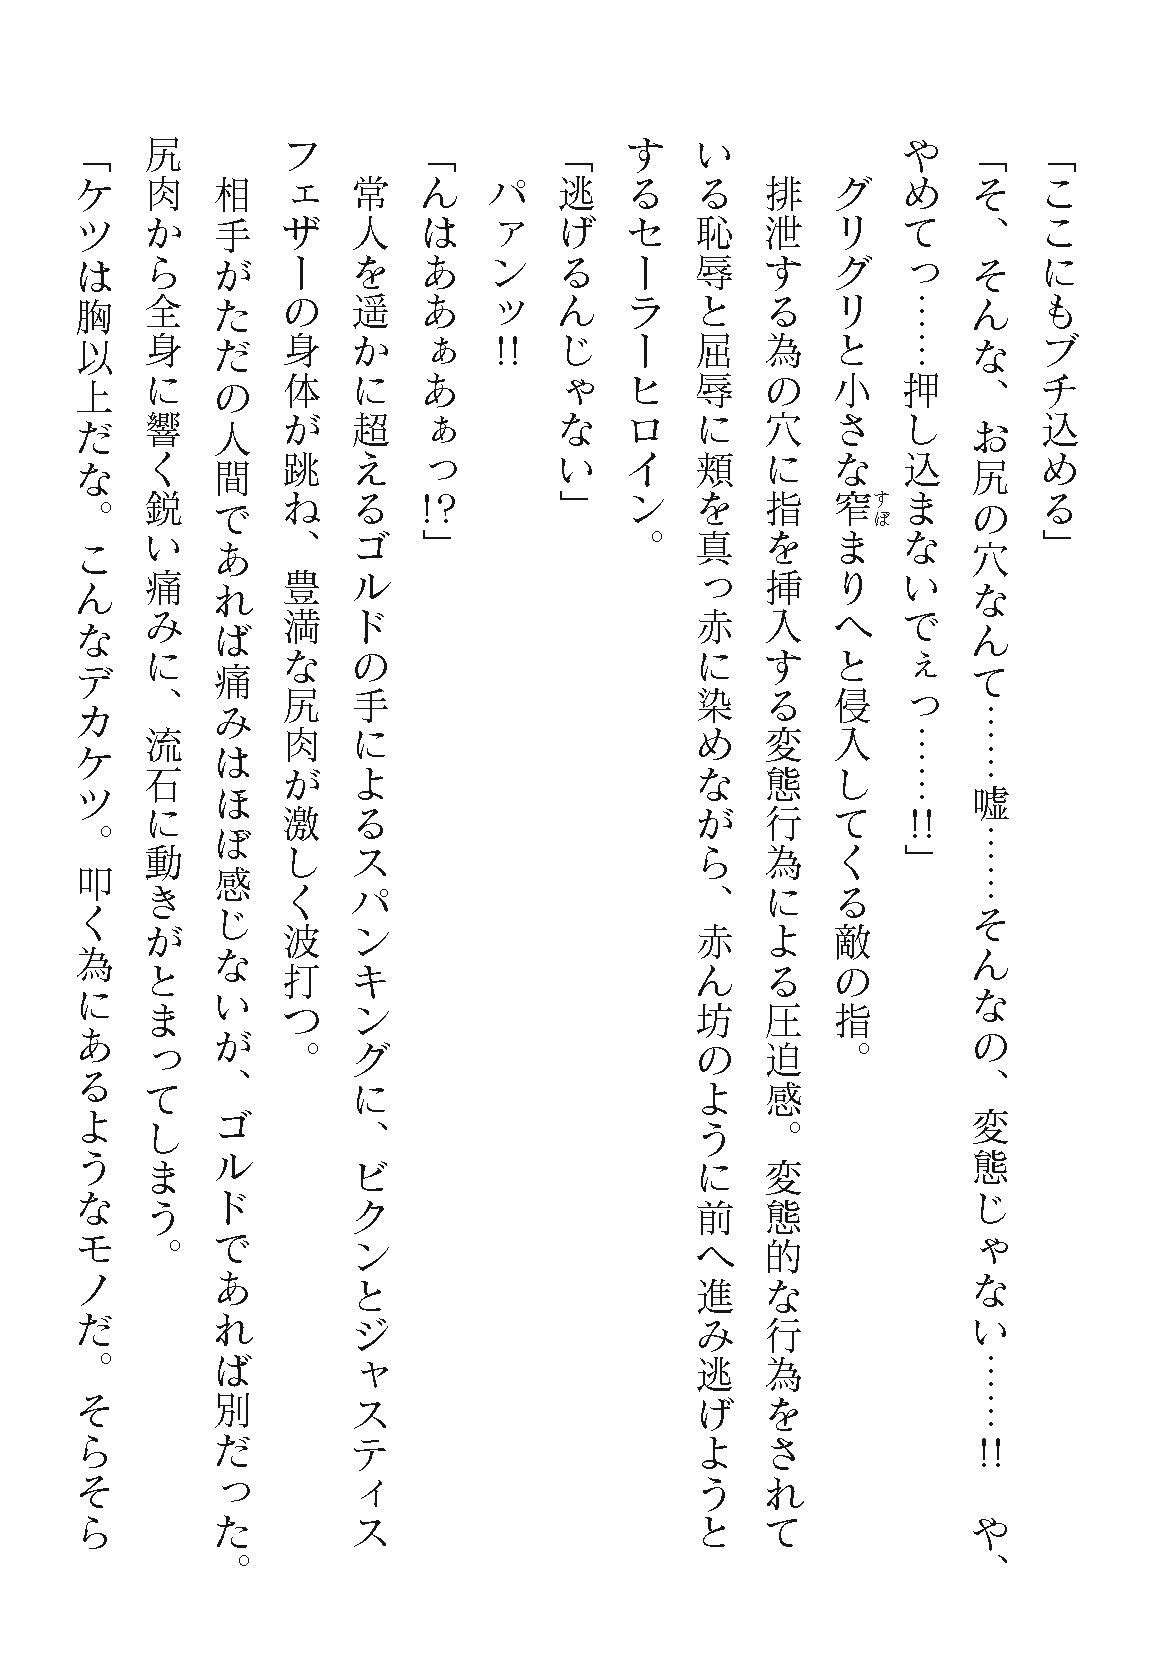 「ここにもブチ込める」
「そ、そんな、お尻の穴なんて……嘘……そんなの、変態じゃない……!!　や、
やめてっ……押し込まないでぇっ……!!」
　グリグリと小さな窄まりへと侵入してくる敵の指。
　排泄する為の穴に指を挿入する変態行為による圧迫感。変態的な行為をされて
いる恥辱と屈辱に頬を真っ赤に染めながら、赤ん坊のように前へ進み逃げようと
するセーラーヒロイン。
「逃げるんじゃない」
　パァンッ!!
「んはああぁあぁっ!?」
　常人を遥かに超えるゴルドの手によるスパンキングに、ビクンとジャスティス
フェザーの身体が跳ね、豊満な尻肉が激しく波打つ。
　相手がただの人間であれば痛みはほぼ感じないが、ゴルドであれば別だった。
尻肉から全身に響く鋭い痛みに、流石に動きがとまってしまう。
「ケツは胸以上だな。こんなデカケツ。叩く為にあるようなモノだ。そらそら
すぼ